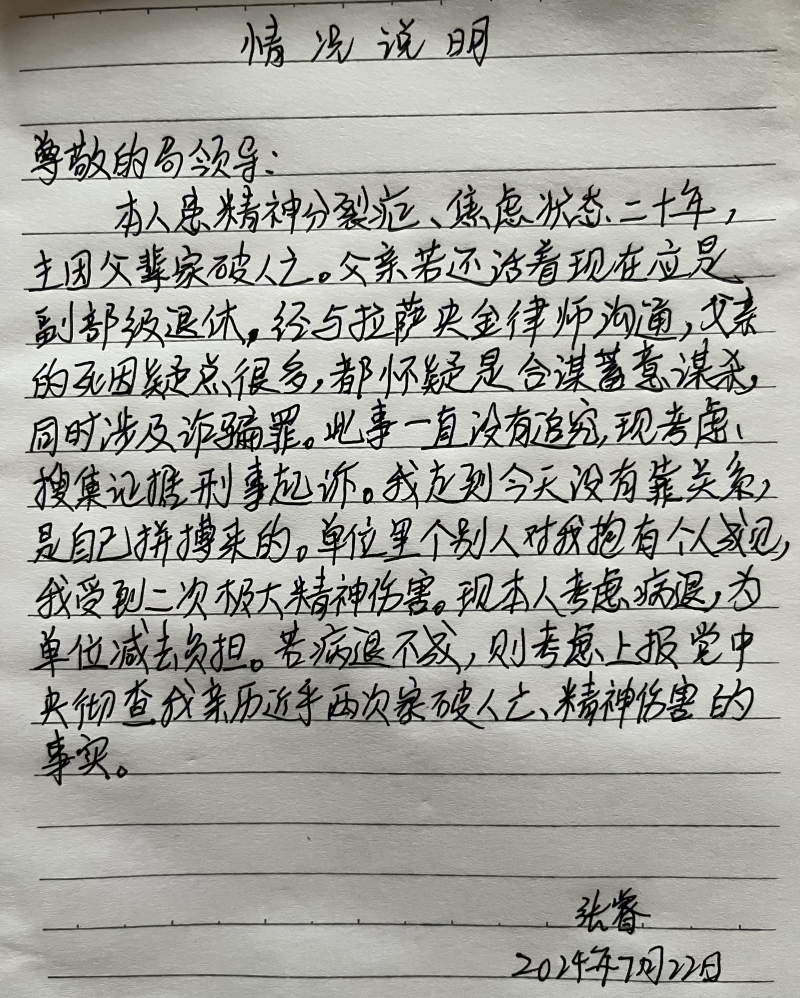 情况说明
尊敬的局领导：
本人患精神分裂症、焦虑状态二十年，
主因父辈家破人亡。父亲若还活着现在应是
副部级退休，经与拉萨央金律师沟通，父亲
的死因疑点很多，都怀疑是合谋蓄意谋杀，
同时涉及诈骗罪。此事一直没有追究，现考虑
搜集证据刑事起诉。我走到今天没有靠关系，
是自己拼搏来的。单位里个别人对我抱有个人成见，
我受到二次极大精神伤害。现本人考虑病退，为
单位减去负担。若病退不成，则考虑上报党中
央彻查我亲历近乎两次家破人亡、精神伤害的
事实。
张睿
2024年7月22日